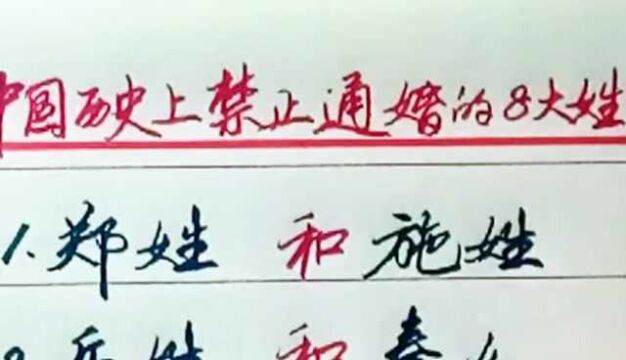 中国历史上禁止通婚的8大姓
1.郑姓 和 施姓
岳姓 和 秦